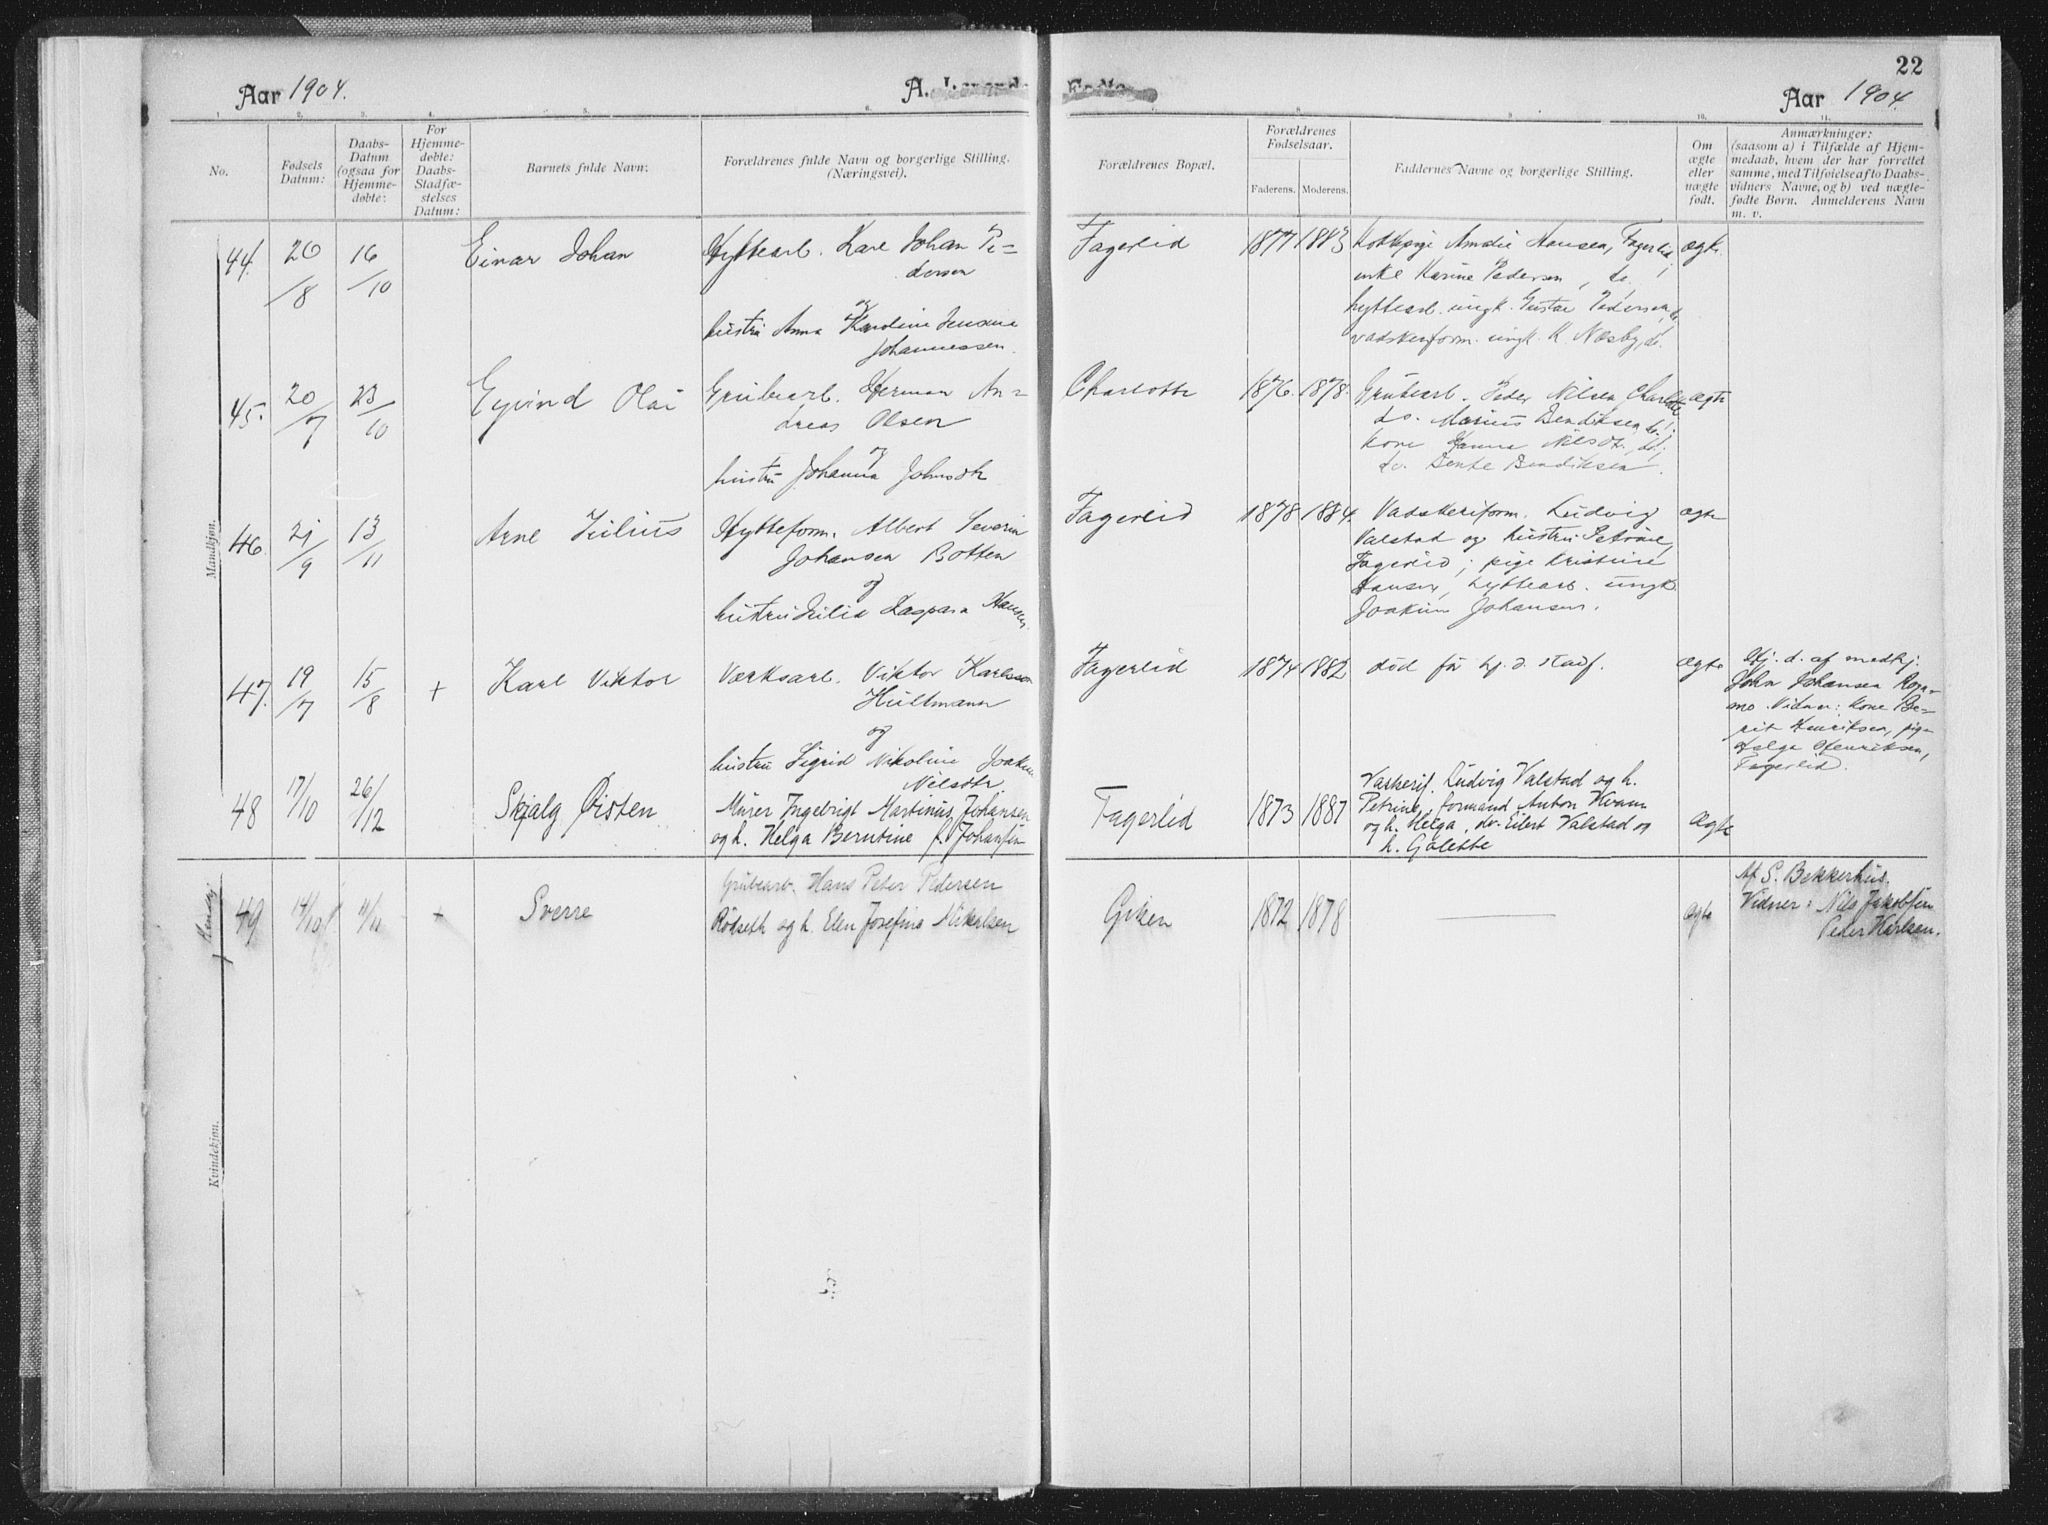 22
Aar 1904.
A. Levende
Fødte
Aar 1904.
1. 2. 3. 4. 5. 6. 8. 9. 10. 11.
No.
Fødsels
Datum:
Daabs-
Datum
(ogsaa for
Hjemme-
døbte:
For
Hjemme-
døbte:
Daabs-
Stadfæ-
stelses
Datum:
Barnets fulde Navn:
Forældrenes fulde Navn og borgerlige Stilling.
(Næringsvei).
Forældrenes Bopæl.
Forældrenes
Fødselsaar.
Faderens. Moderens.
Faddernes Navne og borgerlige Stilling.
Om
ægte
eller
uægte
født.
Anmærkninger:
(saasom a) i Tilfælde af Hjem-
medaab, hvem der har forrettet
samme, med Tilføielse af to Daabs-
vidners Navne, og b) ved uægte-
fødte Børn. Anmelderens Navn
m. v.
Mandkjøn.
44. 20/8 16/10 Einar Johan
Hyttearb. Karl Johan Pe-
dersen
og
hustru Anna Karoline Jensine
Johannessen.
Fagerlid 1877 1883
Kokkepige Amalie Hansen, Fagerlid;
enke Karine Pedersen, do.
hyttearb. ungk. Gustav Pedersen, do.
vadskeriform. ungk. K. Næsby, do.
ægte
45. 20/7 23/10 Eyvind Olai
Grubearb. Herman An-
dreas Olsen
og
hustru Johanna Johnsdtr.
Charlotta 1876. 1878.
Grubearb. Peder Nilsen Charlotta
do. Marius Bendiksen do.;
kone Hanna Nilsdtr., do.;
do. Bente Bendiksen.
ægte
46. 21/9 13/11 Arne Julius
Hytteform. Albert Severin
Johansen Botten
og
hustru Julie Kaspara Hansen.
Fagerlid 1878 1884.
Vadskeriform. Ludvig
Valstad og hustru Petrine,
Fagerlid; pige Kristine
Hansen, hyttearb. ungk.
Joakim Johansen.
ægte
47. 19/7 15/8 + Karl Viktor
Værksarb. Viktor Karlsson
Hultmann
og
hustru Sigrid Nikoline Joakim
Nilsdtr.
Fagerlid 1874 1882 død før hj. d. stadf. ægte
Hj. d. af medhj.
John Johansen Rogn-
mo. Vidner: kone Be-
rit Henriksen, pige
Helga Henriksen,
Fagerlid.
48 17/10 26/12 Skjalg Øisten
Murer Ingebrigt Martinus Johansen
og h. Helga Berntine f. Johansen
Fagerlid 1873 1887
Vaskerif. Ludvig Valstad og h.
Petrine, formand Anton Kvam
og h. Helga, do. Eilert Valstad og
h. Golette
ægte
Kvindekj
49 14/10 11/11 + Sverre
Grubearb. Hans Peter Pedersen
Rödseth og h. Elen Josefine Mikalsen
Giken 1872 1878 ægte
Af S. Bekkerhus.
Vidner: Nils Jakobsen
Peder Karlsen.
Kvindekjøn.